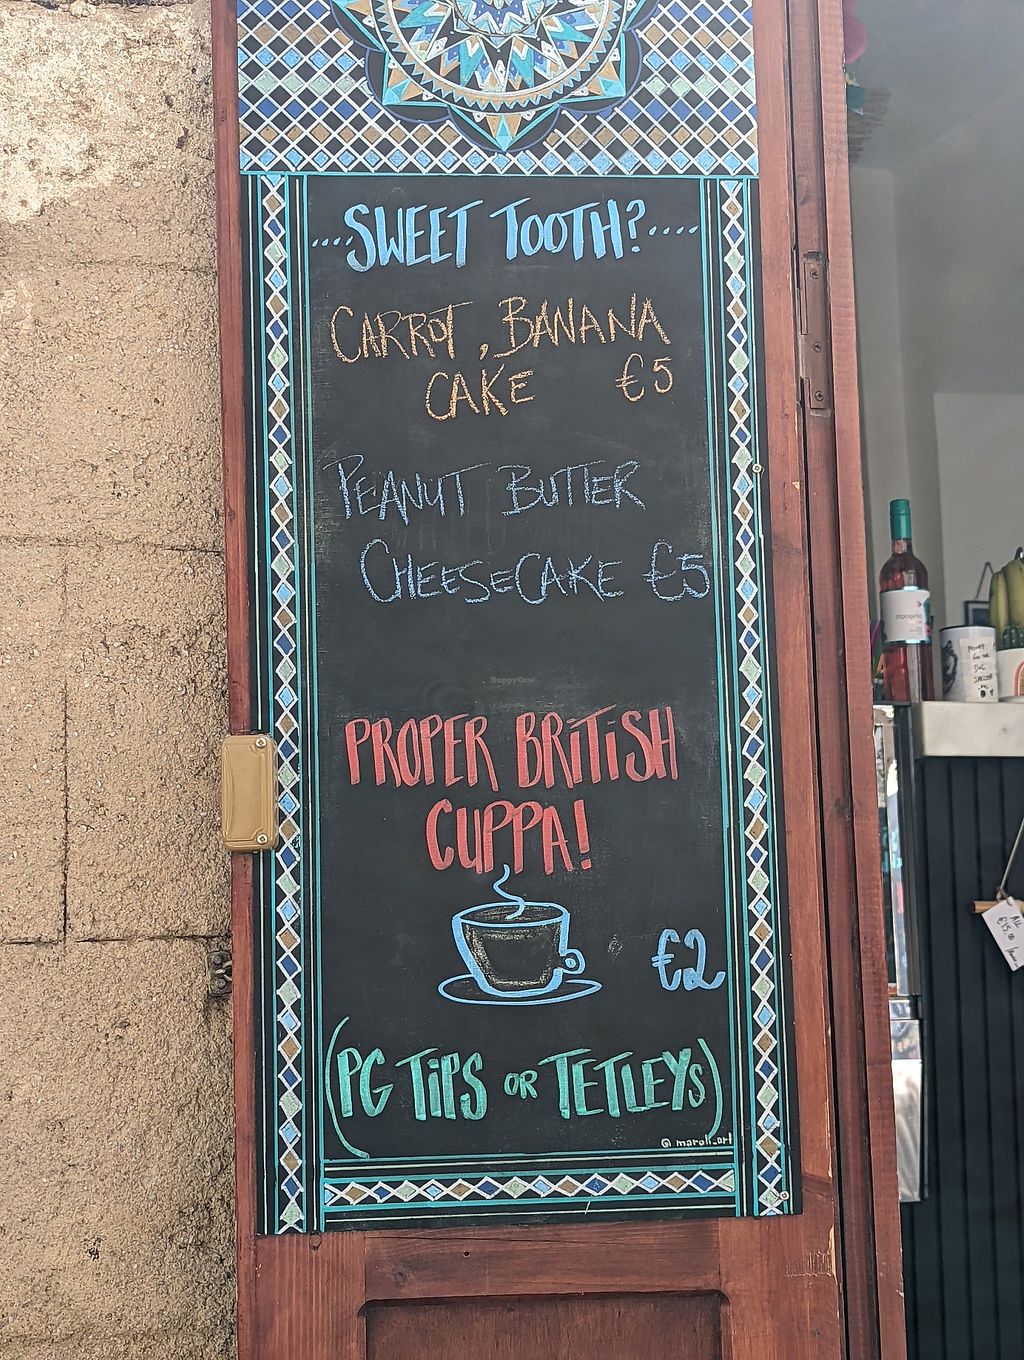 ....SWEET TOOTH?....
CARROT, BANANA
CAKE €5
PEANUT BUTTER
CHEESECAKE €5
HappyCow
PROPER BRiTiSH
CUPPA!
€2
(PG TiPS OR TETLEYS)
@maroli_art
MONEY
FOR THE
DOG
SHELTER
ALL